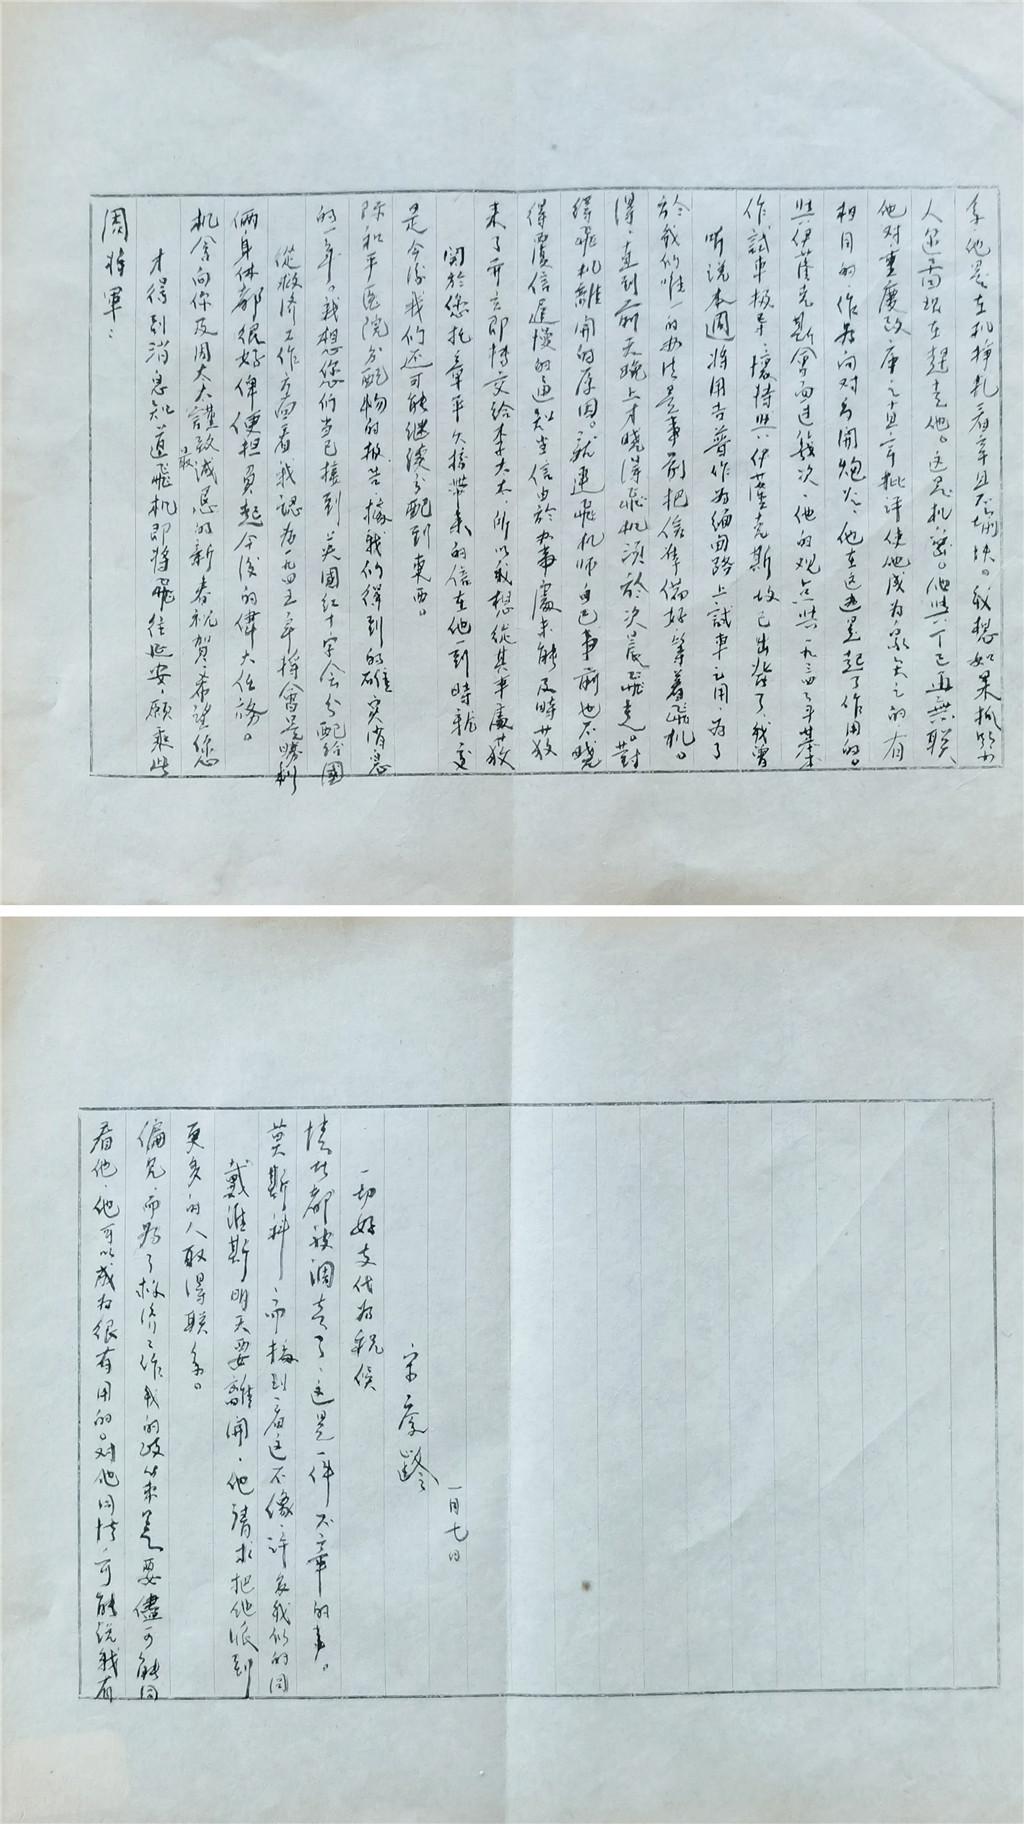 周将軍：
才得到消息知道飛机即将飛往延安，願乘此
机會向你及周夫人謹致最誠恳的新春祝賀希望您
倆身体都很好俾便担負起今後的偉大任務。
從救济工作方面看，我認为一九四五年将會是勝利
的一年。我想您们当已接到英國红十字会分配给國
际和平医院分配物的报告。據我们得到的確实消息
是今後我们还可能继续分配到東西。
関於您托章平久捎帶来的信在他一到時就交
来了并立即博交给李太太。所以我想從其事處获
得覆信遲慢的通知当信由於办事處未能及時获
得飛机離開的原因。就連飛机师自己事前也不晓
得，直到前天晚上才晓得飛机須於次晨飛走。對
於我们唯一的办法是事前把信準備好等着飛机。
听说本週将用吉普作为緬甸路上試車之用，为了
作試車报导，懷特與伊薩克斯故已出發了，我曾
與伊薩克斯會面过幾次，他的观点與一九三四年某
相同的，作为向对方開炮火，他在这边是起了作用的。
他对重慶政府之直言批评使他成为众矢之的有
人企圖現在趕走他。这是机密。他與丁已通無联
系，他是在挣扎看幸且不愉快。我想如果
看他，他可以成为很有用的。对他同情，可能说我有
偏見，而为了救济工作我的政策是要儘可能同
更多的人取得联系。
戴維斯明天要離開，他請求把他派到
莫斯科，而接到这不像，许多我们的同
情者都被调走了，这是一件不幸的事。
一切好友代为祝候
宋慶齡
一月七日